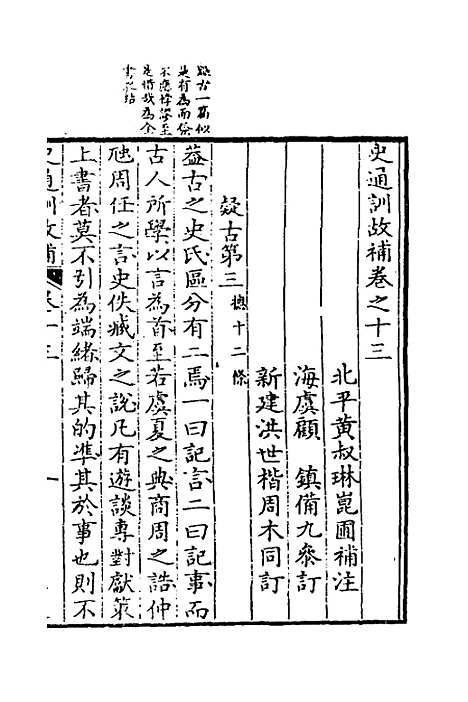 史通訓故補卷之十三
北平黃叔琳崑圃補注
海虞顧　鎮備九參訂
新建洪世楷周木同訂
疑古第三總十二條
疑古一篇似
是有為而發
蓋古之史氏區分有二焉一曰記言二曰記事而
古人所學以言為首至若虞夏之典商周之誥仲
虺周任之言史佚臧文之說凡有遊談專對獻策
上書者莫不引為端緒歸其的準其於事也則不
史通訓故補
卷十三
一